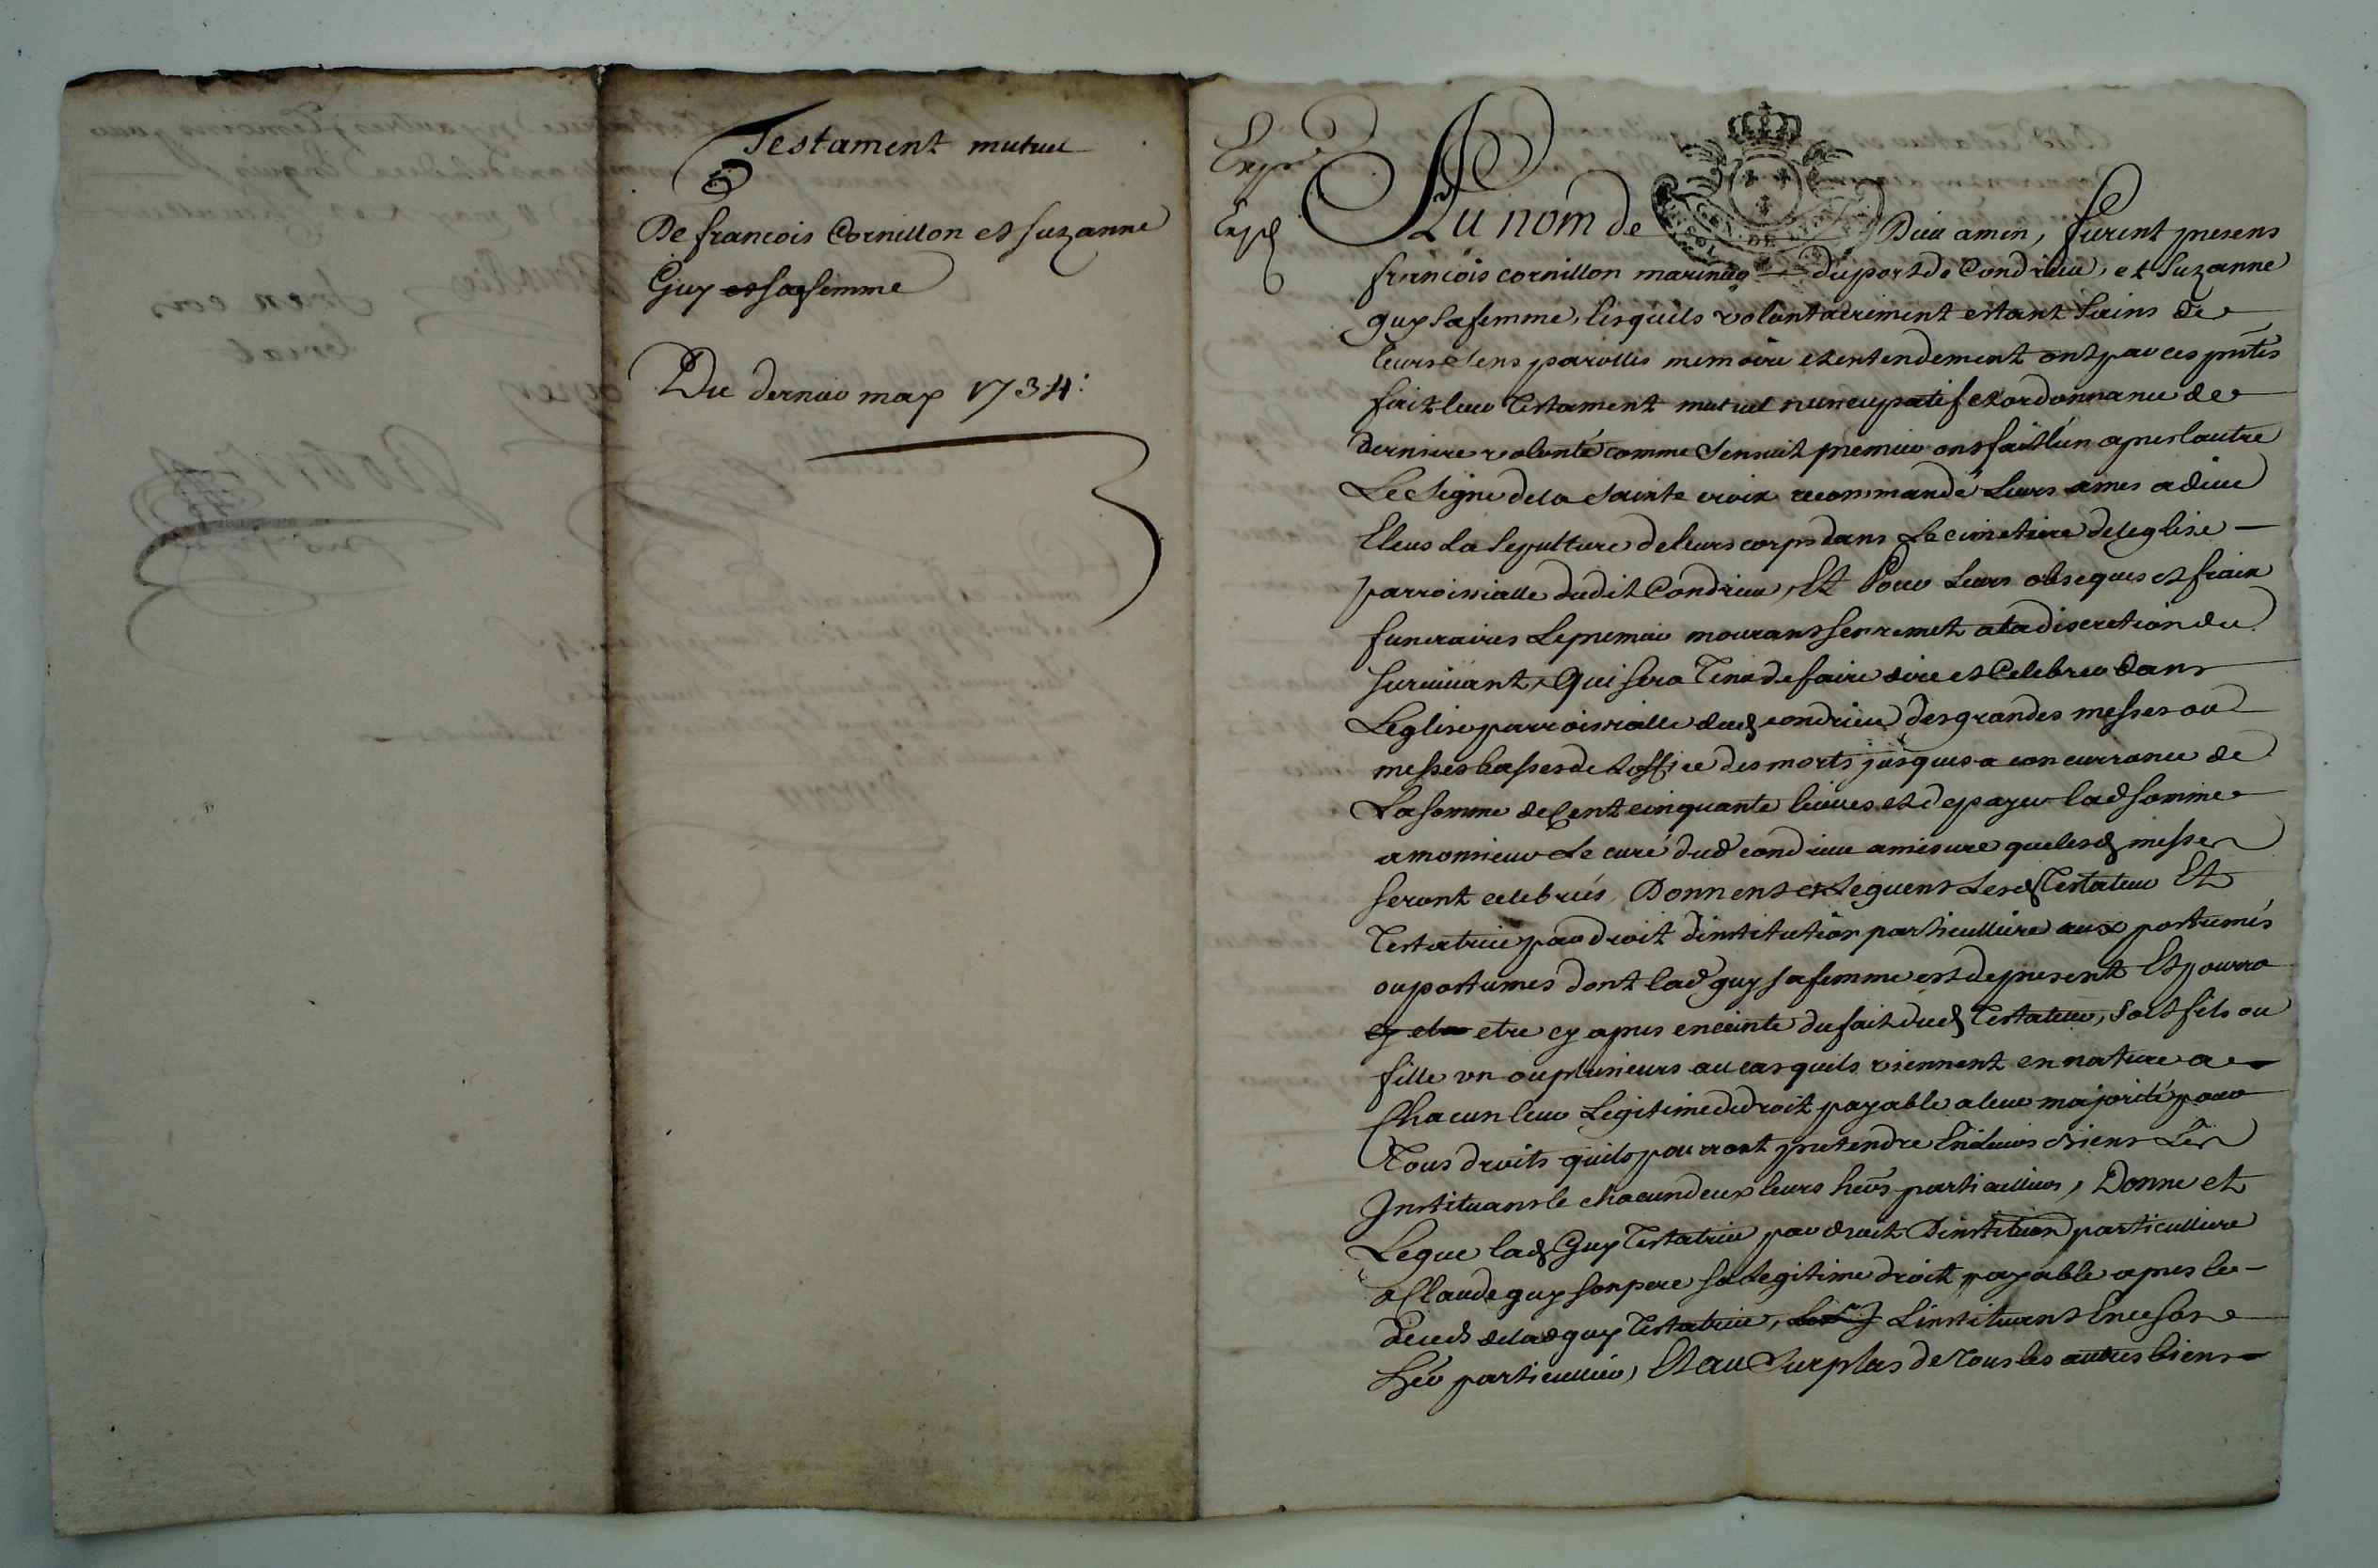 Testament mutuel
De francois Cornillon et suzanne
Guy et sa femme
Du dernier may 1734:
Exp.
Exp.
Au nom de Dieu amen, furent presens
francois cornillon marinier du port de Condrieu, et Suzanne
guy sa femme, lesquels volontairement estant Sains de
leurs Sens parolles memoire et entendement ont par ces pntes
fait leur Testament mutuel nuncupatif et ordonnance de
derniere volonté comme Sensuit premier ont fait l'un apres lautre
Le Signe de la Sainte croix recommandé Leurs ames a dieu
Eleus La Sepulture de leurs corps dans Le cimetiere de leglise
parroissialle dudit Condrieu, Et Pour Leurs obseques et fraix
funeraires Le premier mourant sen remet a la discretion du
survivant, Qui sera Tenu de faire dire et Celebrer dans
Leglise parroissialle dud condrieu des grandes messes ou
messes basses de Loffice des morts jusques a concurrance de
La somme de Cent cinquante livres et de payer lad somme
a monsieur Le curé dud condrieu a mesure que lesd messes
seront celebrées, Donnent et Leguent Lesd Testateur Et
Testatrice par droit dinstitution particulliere aux postumes
ou postumes dont lad guy sa femme est de present Et pourra
etre cy apres enceinte du fait dud Testateur, soit fils ou
fille un ou plusieurs au cas quils viennent en nature a
Chacun leur Legitime de droit payable a leur majorité pour
Tous droits quils pourront pretendre En Leurs biens Les
Instituans le chacun deux leurs hers particulliers, Donne et
Legue lad Guy Testatrice par droit Dinstituon particulliere
a Claude guy son pere sa Legitime droit payable apres le
deced de lad guy Testatrice, Linstituant En ce son
her particullier, Et au Surplus de Tous les autres biens